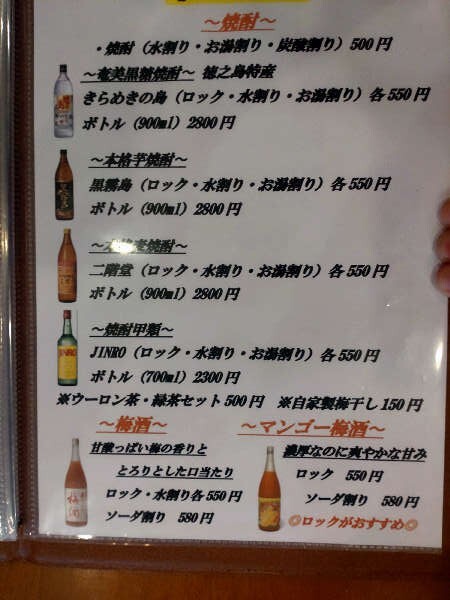 ～焼酎～
・焼酎（水割り・お湯割り・炭酸割り）500円
～奄美黒糖焼酎～ 徳之島特産
きらめきの島（ロック・水割り・お湯割り）各550円
ボトル（900ml）2800円
～本格芋焼酎～
黒霧島（ロック・水割り・お湯割り）各550円
ボトル（900ml）2800円
麦焼酎～
二階堂（ロック・水割り・お湯割り）各550円
ボトル（900ml）2800円
～焼酎甲類～
JINRO（ロック・水割り・お湯割り）各550円
ボトル（700ml）2300円
※ウーロン茶・緑茶セット500円 ※自家製梅干し150円
～梅酒～
甘酸っぱい梅の香りと
とろりとした口当たり
ロック・水割り各550円
ソーダ割り 580円
～マンゴー梅酒～
濃厚なのに爽やかな甘み
ロック 550円
ソーダ割り 580円
◎ロックがおすすめ◎
JINRO
梅酒